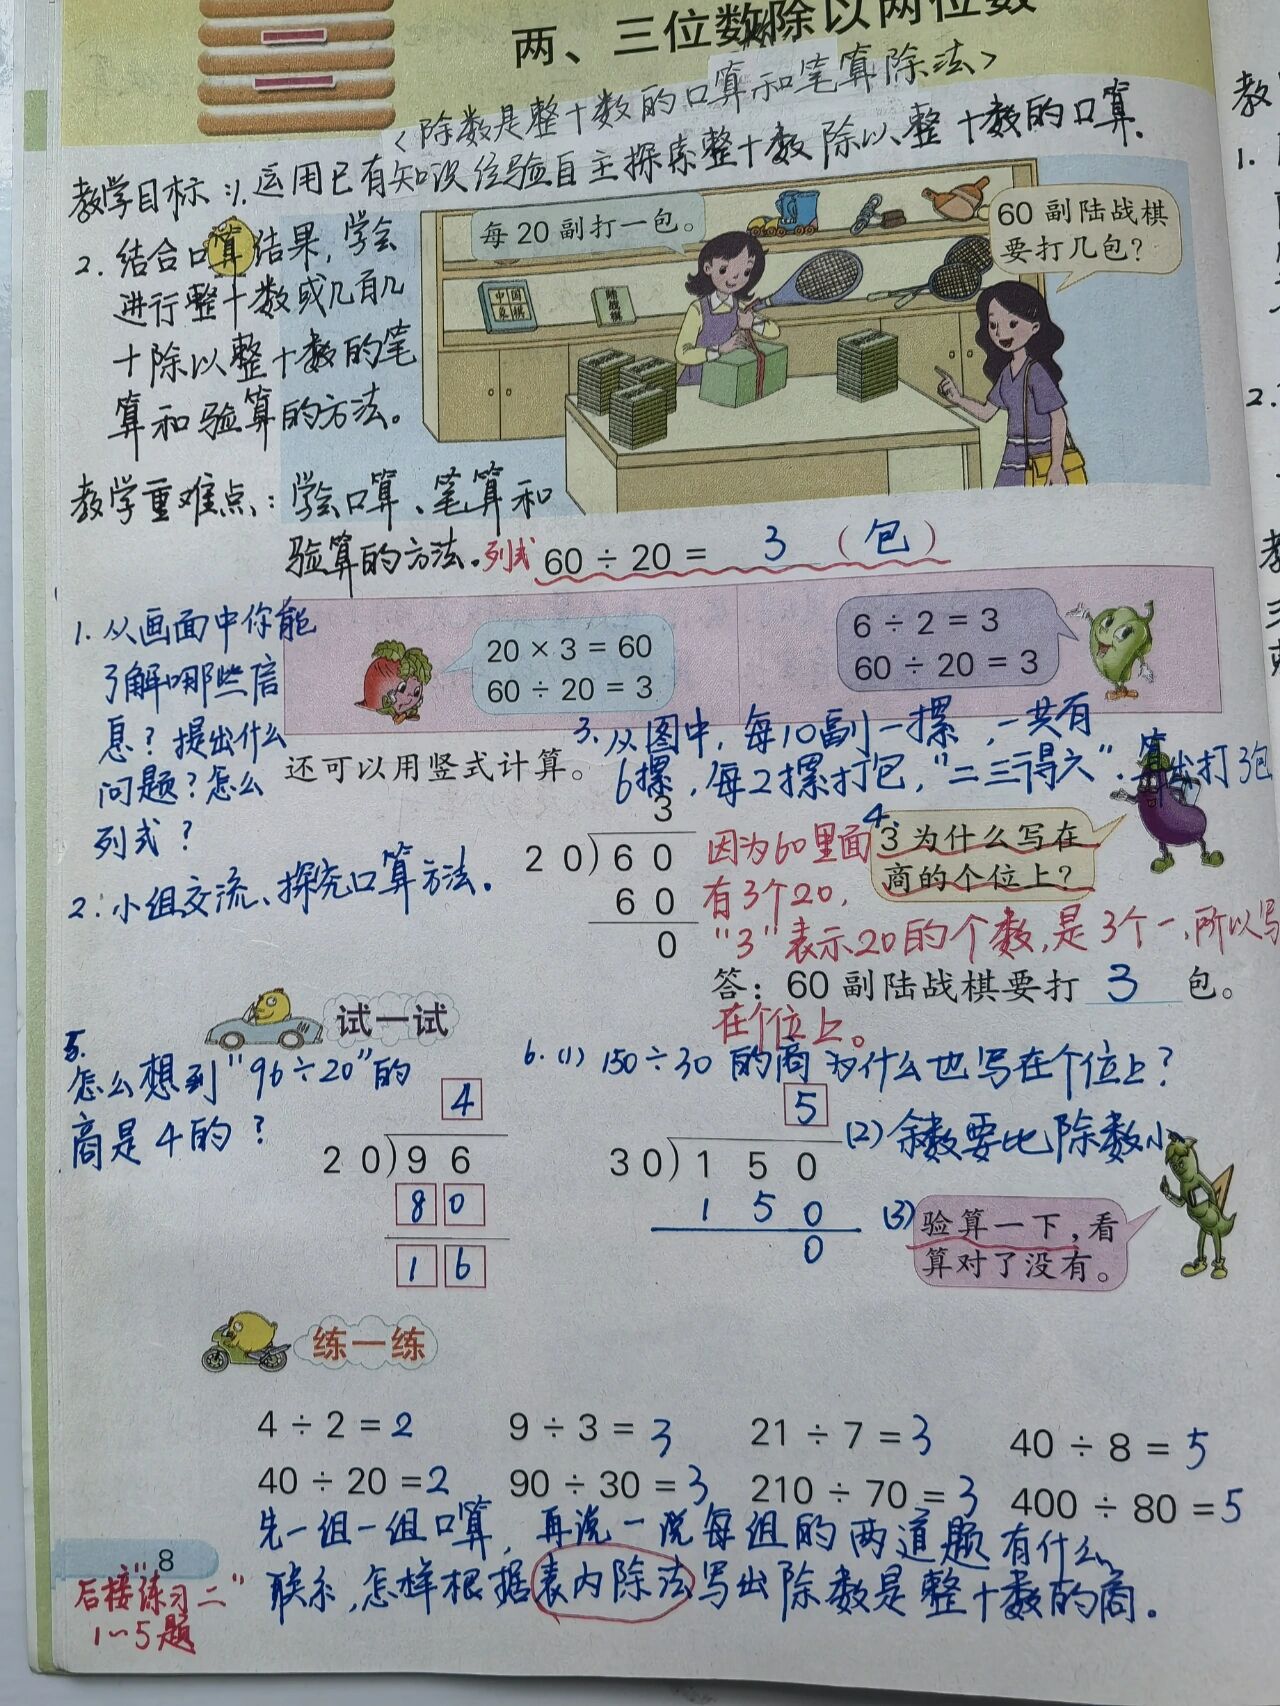 两、三位数除以两位数
<除数是整十数的口算和笔算除法>
教学目标:1.运用已有知识经验自主探索整十数除以整十数的口算.
2.结合口算结果,学会
进行整十数或几百几
十除以整十数的笔
算和验算的方法。
每 20 副打一包。
60 副陆战棋
要打几包?
中国
象棋
陆战棋
教学重难点:学会口算、笔算和
验算的方法。
列式 60 ÷ 20 = 3 (包)
1. 从画面中你能
了解哪些信
息?提出什么
问题?怎么
列式?
2. 小组交流、探究口算方法.
20 × 3 = 60
60 ÷ 20 = 3
6 ÷ 2 = 3
60 ÷ 20 = 3
3. 从图中,每10副一摞,一共有
6摞,每2摞打包,"二三得六".算出打3包
还可以用竖式计算。
3
2 0)6 0
6 0
0
因为60里面
有3个20,
"3"表示20的个数,是3个一,所以写
在个位上。
4. 3 为什么写在
商的个位上?
答:60 副陆战棋要打 3 包。
试一试
5.
怎么想到"96÷20"的
商是4的?
4
2 0)9 6
8 0
1 6
6. (1) 150÷30 的商为什么也写在个位上?
5
3 0)1 5 0
1 5 0
0
(2) 余数要比除数小
(3) 验算一下,看
算对了没有。
练一练
4 ÷ 2 = 2 9 ÷ 3 = 3 21 ÷ 7 = 3 40 ÷ 8 = 5
40 ÷ 20 = 2 90 ÷ 30 = 3 210 ÷ 70 = 3 400 ÷ 80 = 5
先一组一组口算,再说一说每组的两道题有什么
联系,怎样根据表内除法写出除数是整十数的商.
8
后接"练习二"
1~5题
教
1.
2.